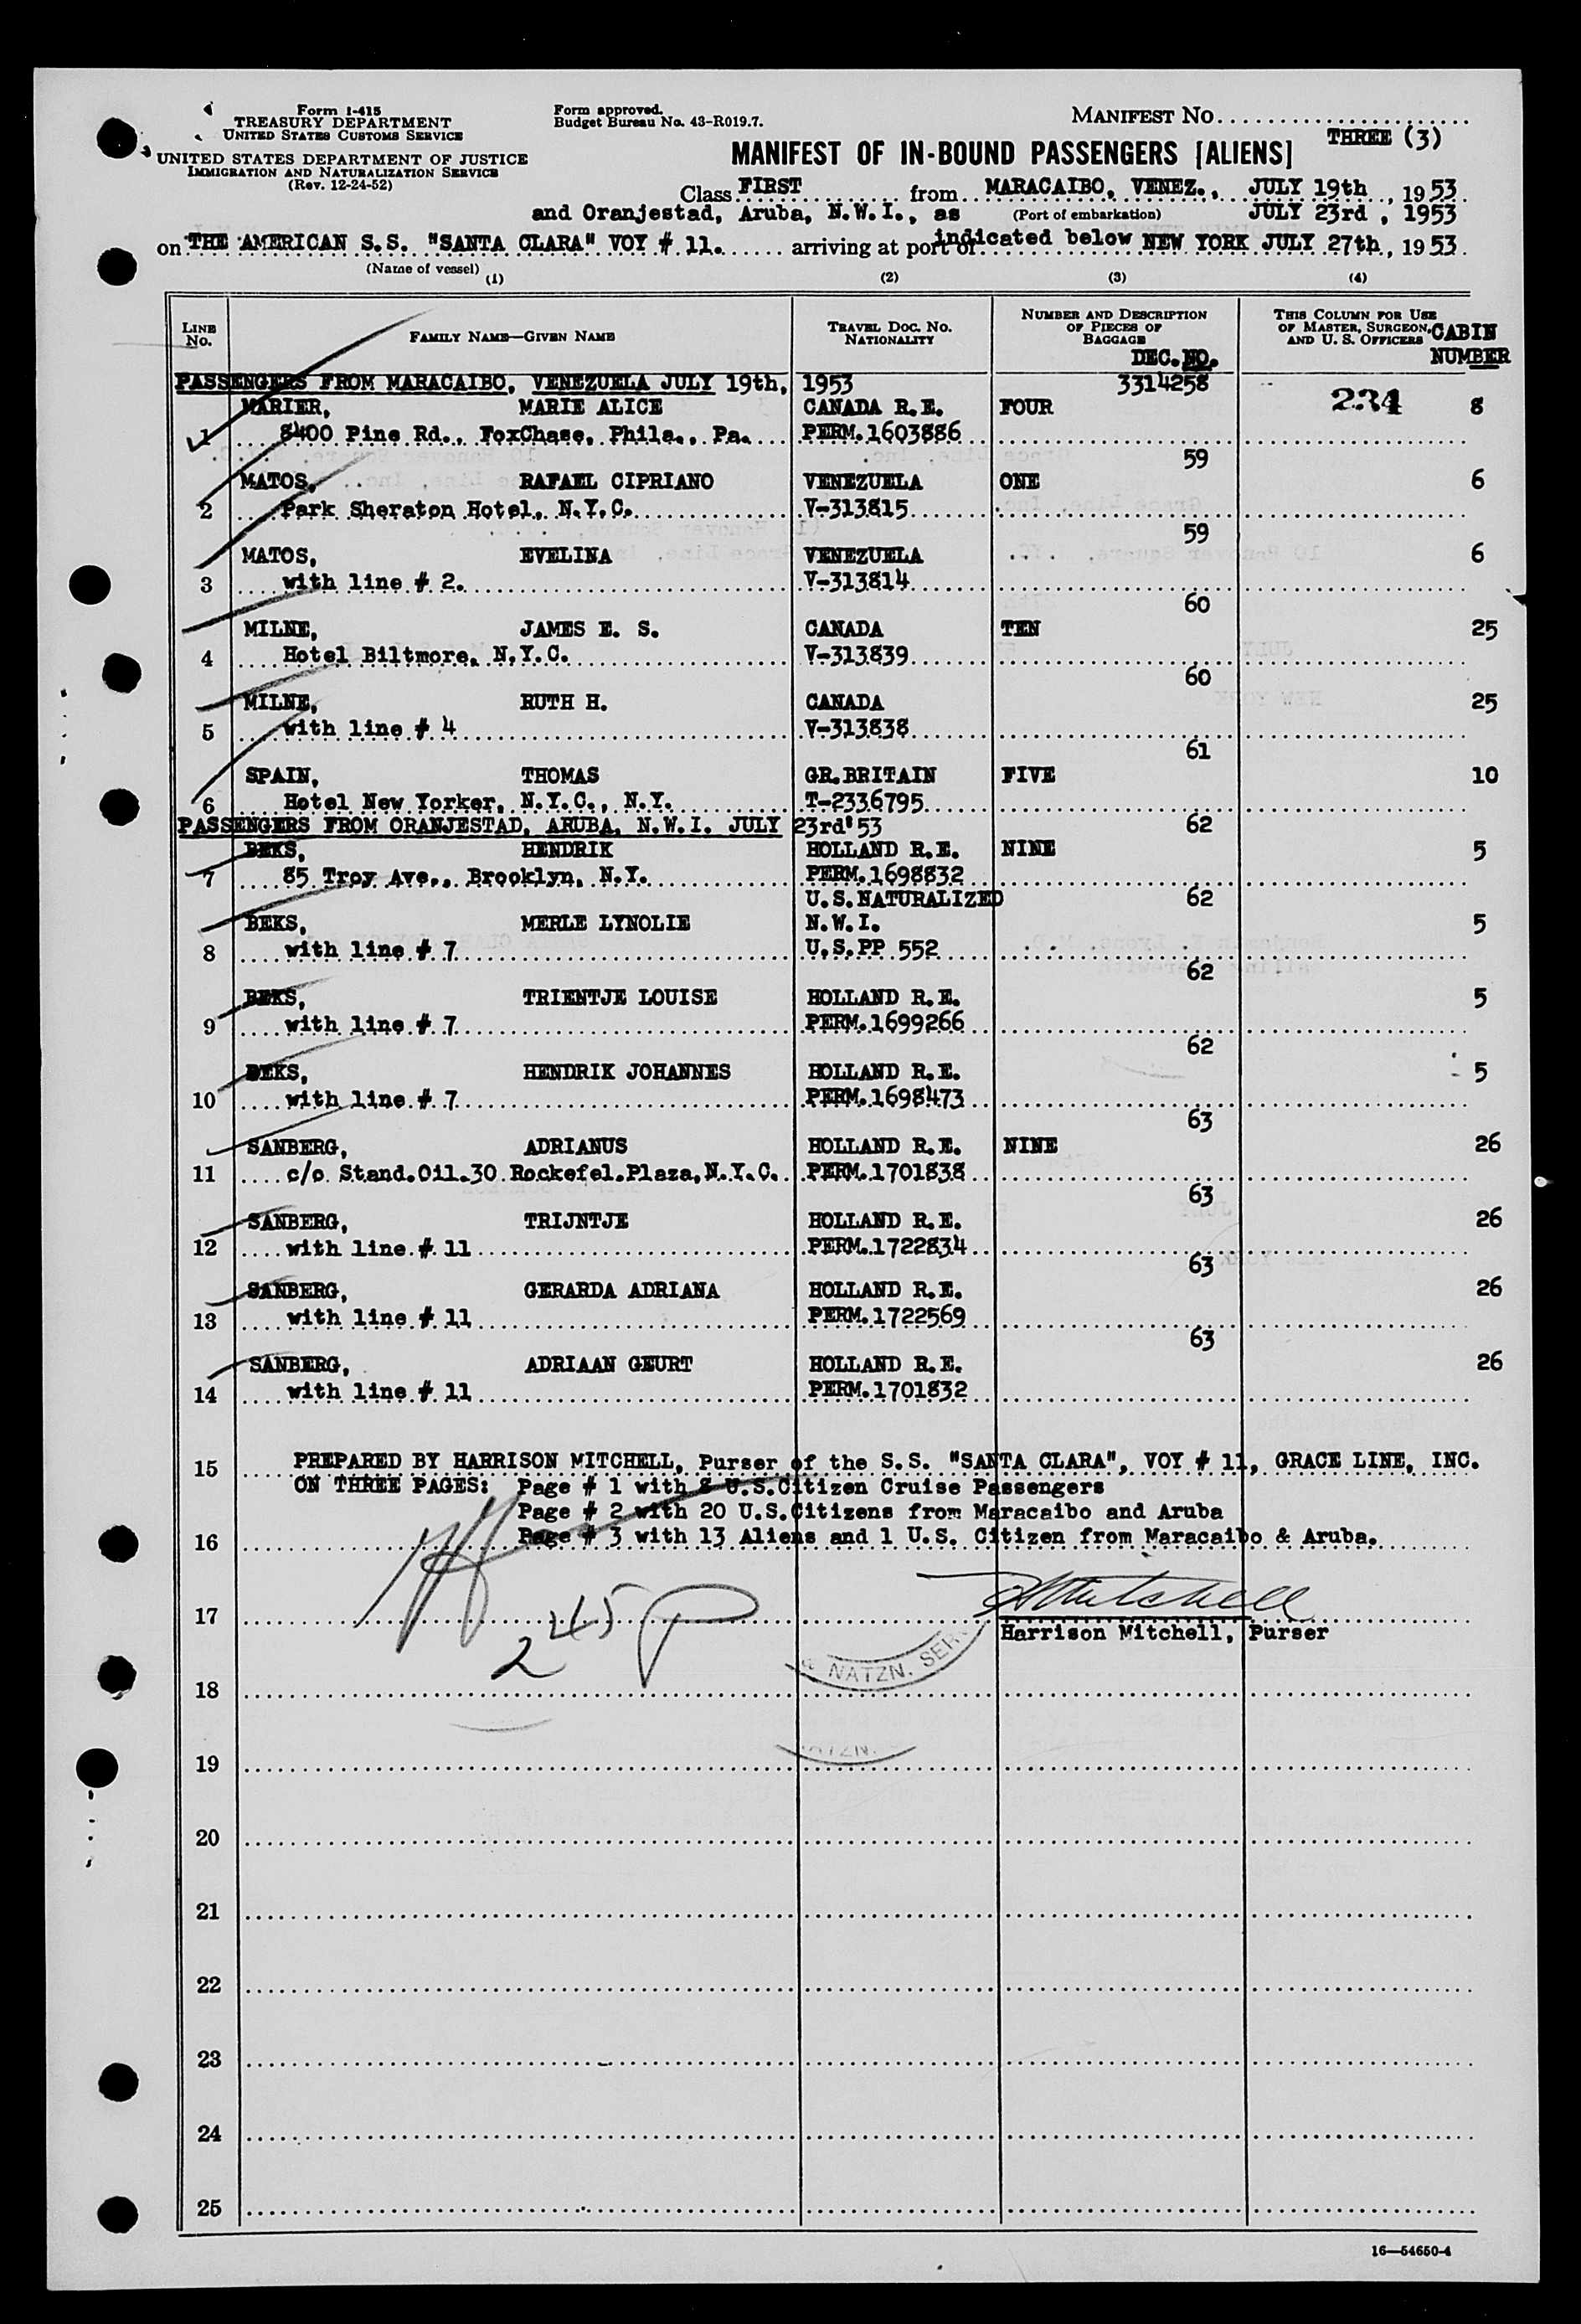 Form I-415
TREASURY DEPARTMENT
UNITED STATES CUSTOMS SERVICE
UNITED STATES DEPARTMENT OF JUSTICE
IMMIGRATION AND NATURALIZATION SERVICE
(Rev. 12-24-52)
Form approved.
Budget Bureau No. 43-R019.7.
MANIFEST NO. THREE (3)
MANIFEST OF IN-BOUND PASSENGERS [ALIENS]
Class FIRST from MARACAIBO, VENEZ., JULY 19th, 1953.
and Oranjestad, Aruba, N.W.I., as (Port of embarkation) JULY 23rd, 1953
on THE AMERICAN S.S. "SANTA CLARA" VOY # 11. arriving at port of indicated below NEW YORK JULY 27th, 1953.
(Name of vessel)
(1) (2) (3) (4)
LINE NO. FAMILY NAME—GIVEN NAME TRAVEL DOC. NO. NATIONALITY NUMBER AND DESCRIPTION OF PIECES OF BAGGAGE THIS COLUMN FOR USE OF MASTER, SURGEON, AND U. S. OFFICERS CABIN NUMBER
DEC. NO.
PASSENGERS FROM MARACAIBO, VENEZUELA JULY 19th, 1953 3314258
MARIER, MARIE ALICE CANADA R.E. FOUR 234 8
1 8400 Pine Rd., FoxChase, Phila., Pa. PERM.1603886
59
MATOS, RAFAEL CIPRIANO VENEZUELA ONE 6
2 Park Sheraton Hotel, N.Y.C. V-313815
59
MATOS, EVELINA VENEZUELA 6
3 with line # 2. V-313814
60
MILNE, JAMES E. S. CANADA TEN 25
4 Hotel Biltmore, N.Y.C. V-313839
60
MILNE, RUTH H. CANADA 25
5 with line # 4 V-313838
61
SPAIN, THOMAS GR.BRITAIN FIVE 10
6 Hotel New Yorker, N.Y.C., N.Y. T-2336795
PASSENGERS FROM ORANJESTAD, ARUBA, N.W.I. JULY 23rd'53 62
BEKS, HENDRIK HOLLAND R.E. NINE 5
7 85 Troy Ave., Brooklyn, N.Y. PERM.1698832
U.S.NATURALIZED 62
BEKS, MERLE LYNOLIE N.W.I. 5
8 with line # 7 U.S.PP 552
62
BEKS, TRIENTJE LOUISE HOLLAND R.E. 5
9 with line # 7 PERM.1699266
62
BEKS, HENDRIK JOHANNES HOLLAND R.E. 5
10 with line # 7 PERM.1698473
63
SANBERG, ADRIANUS HOLLAND R.E. NINE 26
11 c/o Stand.Oil.30 Rockefel.Plaza,N.Y.C. PERM.1701838
63
SANBERG, TRIJNTJE HOLLAND R.E. 26
12 with line # 11 PERM.1722834
63
SANBERG, GERARDA ADRIANA HOLLAND R.E. 26
13 with line # 11 PERM.1722569
63
SANBERG, ADRIAAN GEURT HOLLAND R.E. 26
14 with line # 11 PERM.1701832
15 PREPARED BY HARRISON MITCHELL, Purser of the S.S. "SANTA CLARA", VOY # 11, GRACE LINE, INC.
ON THREE PAGES: Page # 1 with 8 U.S.Citizen Cruise Passengers
Page # 2 with 20 U.S.Citizens from Maracaibo and Aruba
16 Page # 3 with 13 Aliens and 1 U.S. Citizen from Maracaibo & Aruba.
H Mitchell
17 Harrison Mitchell, Purser
245 p
& NATZN. SER
18
19
20
21
22
23
24
25
16—54650-4